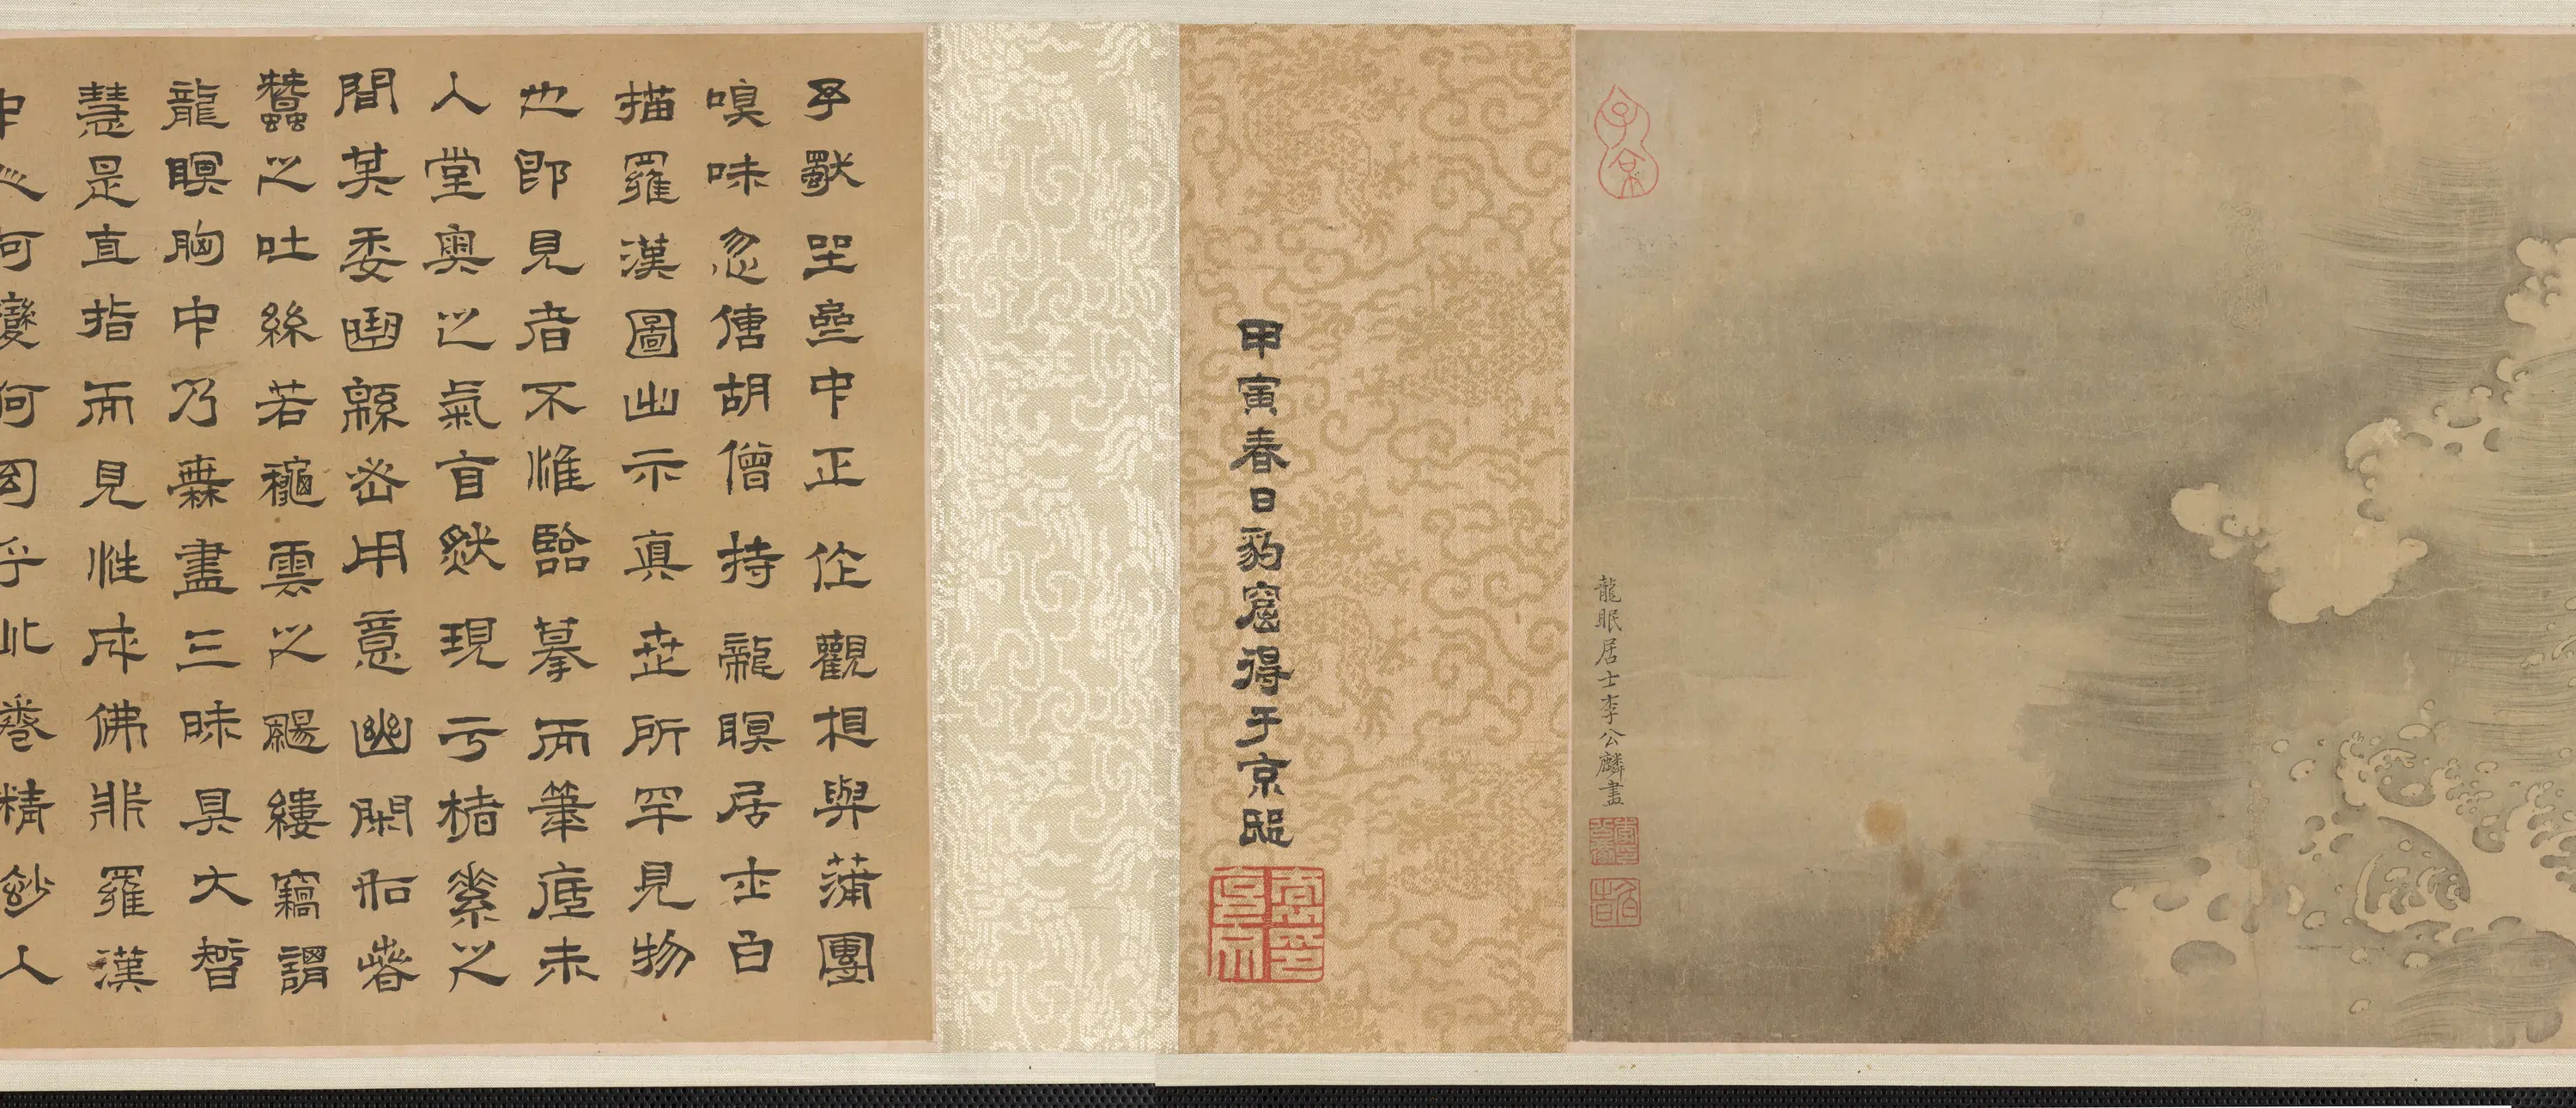 子京
龍眠居士李公麟畫
甲寅春日豹窟得于京邸
予獸坐壺中正作觀相與蒲團
嗅味忽傳胡僧持龍瞑居士白
描羅漢圖出示真世所罕見物
也即見者不惟臨摹而筆底未
入堂奧之氣盲然現于楮素之
間其委曲緜密用意幽閑和睿
蠶之吐絲若龝雲之颺縷竊謂
龍瞑胸中乃無盡三昧具大智
慧是直指而見性成佛非羅漢
何變何幻乎此卷精紗人